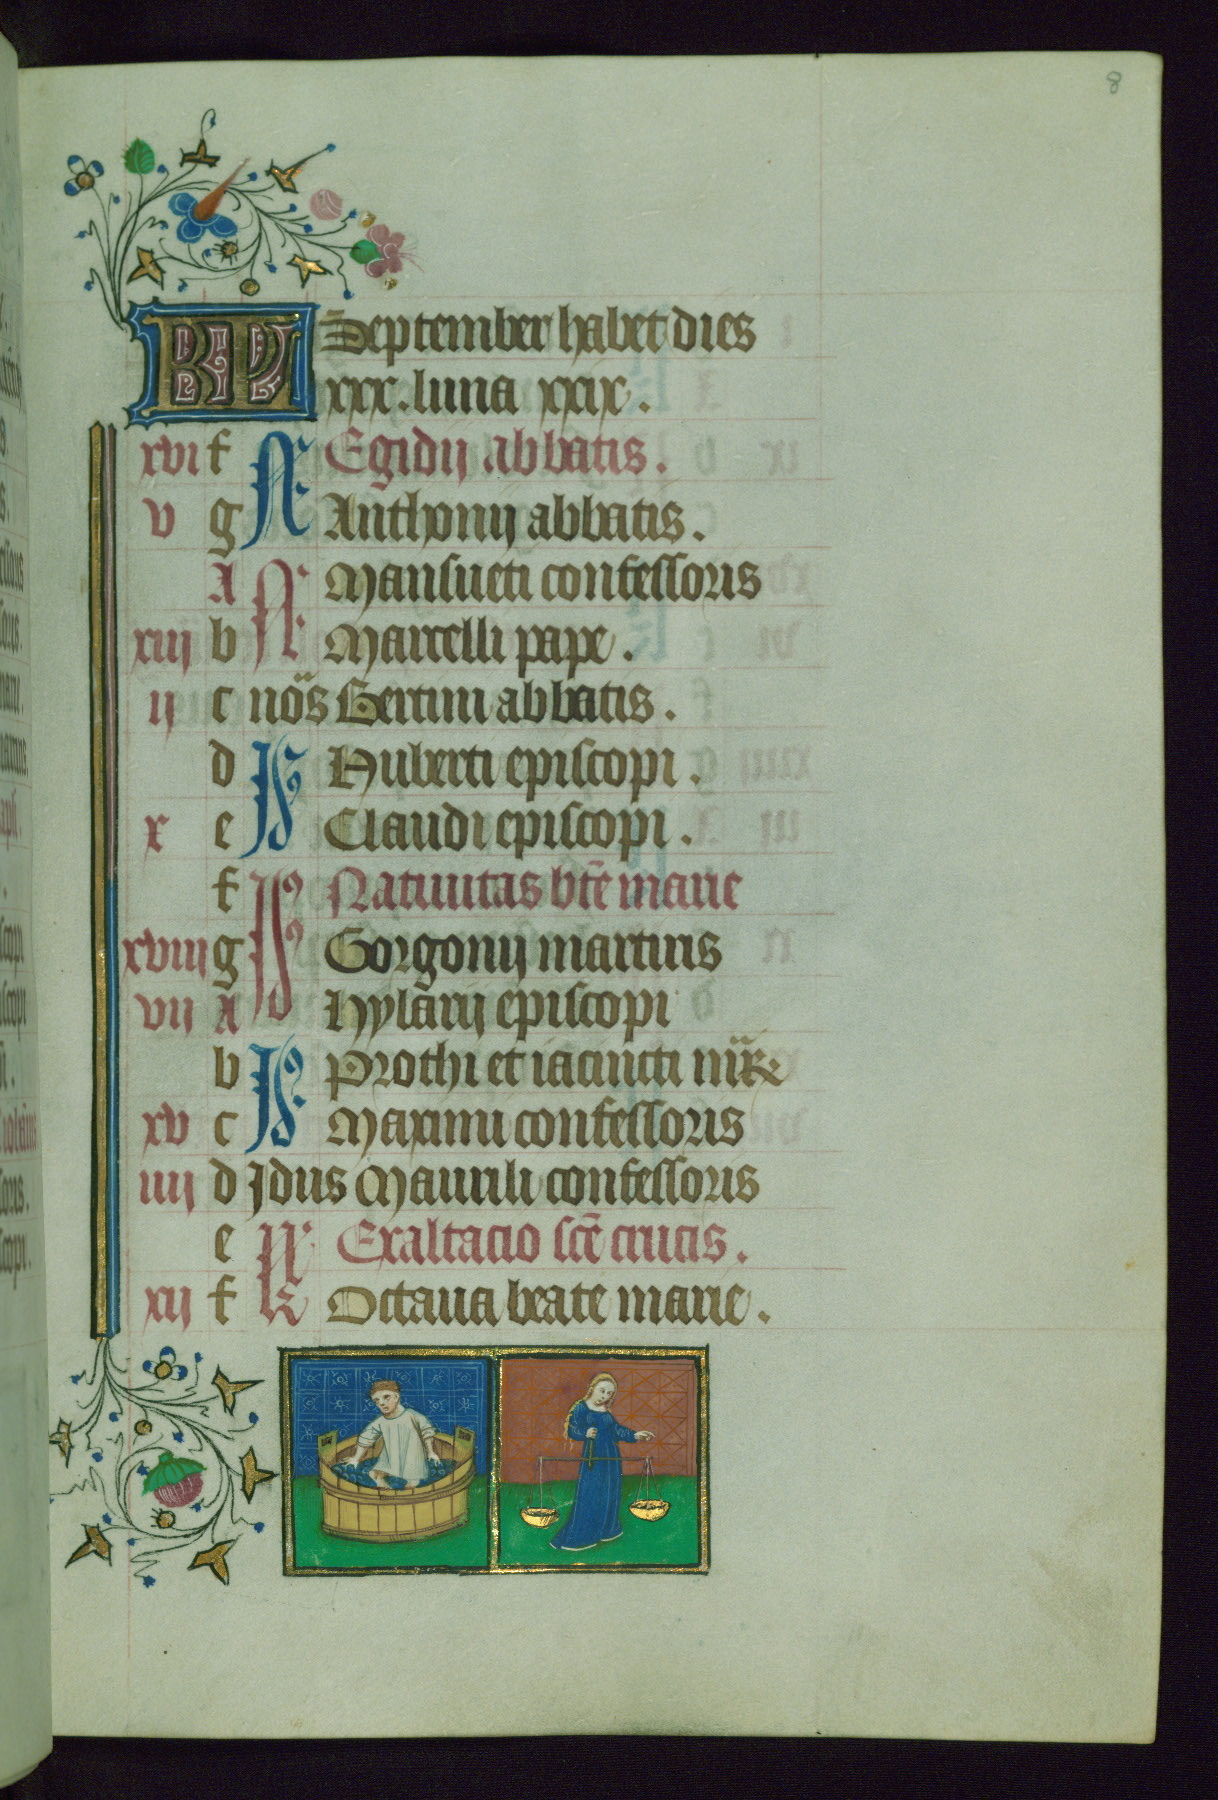 8
KL September habet dies
xxx. luna xxix.
xvi f N Egidij abbatis.
v g Anthonij abbatis.
A N Mansueti confessoris
xiij b Martelli pape.
ij c nōs Bertini abbatis.
d Huberti episcopi.
x e Claudi episcopi.
f Natiuitas btē marie
xviij g Gorgonij martiris
vij A Hylarij episcopi
b Prothi et iacincti
xv c Maximi confessoris
iiij d Idus Maurili confessoris
e Exaltacio scē crucis.
xij f k Octaua beate marie.